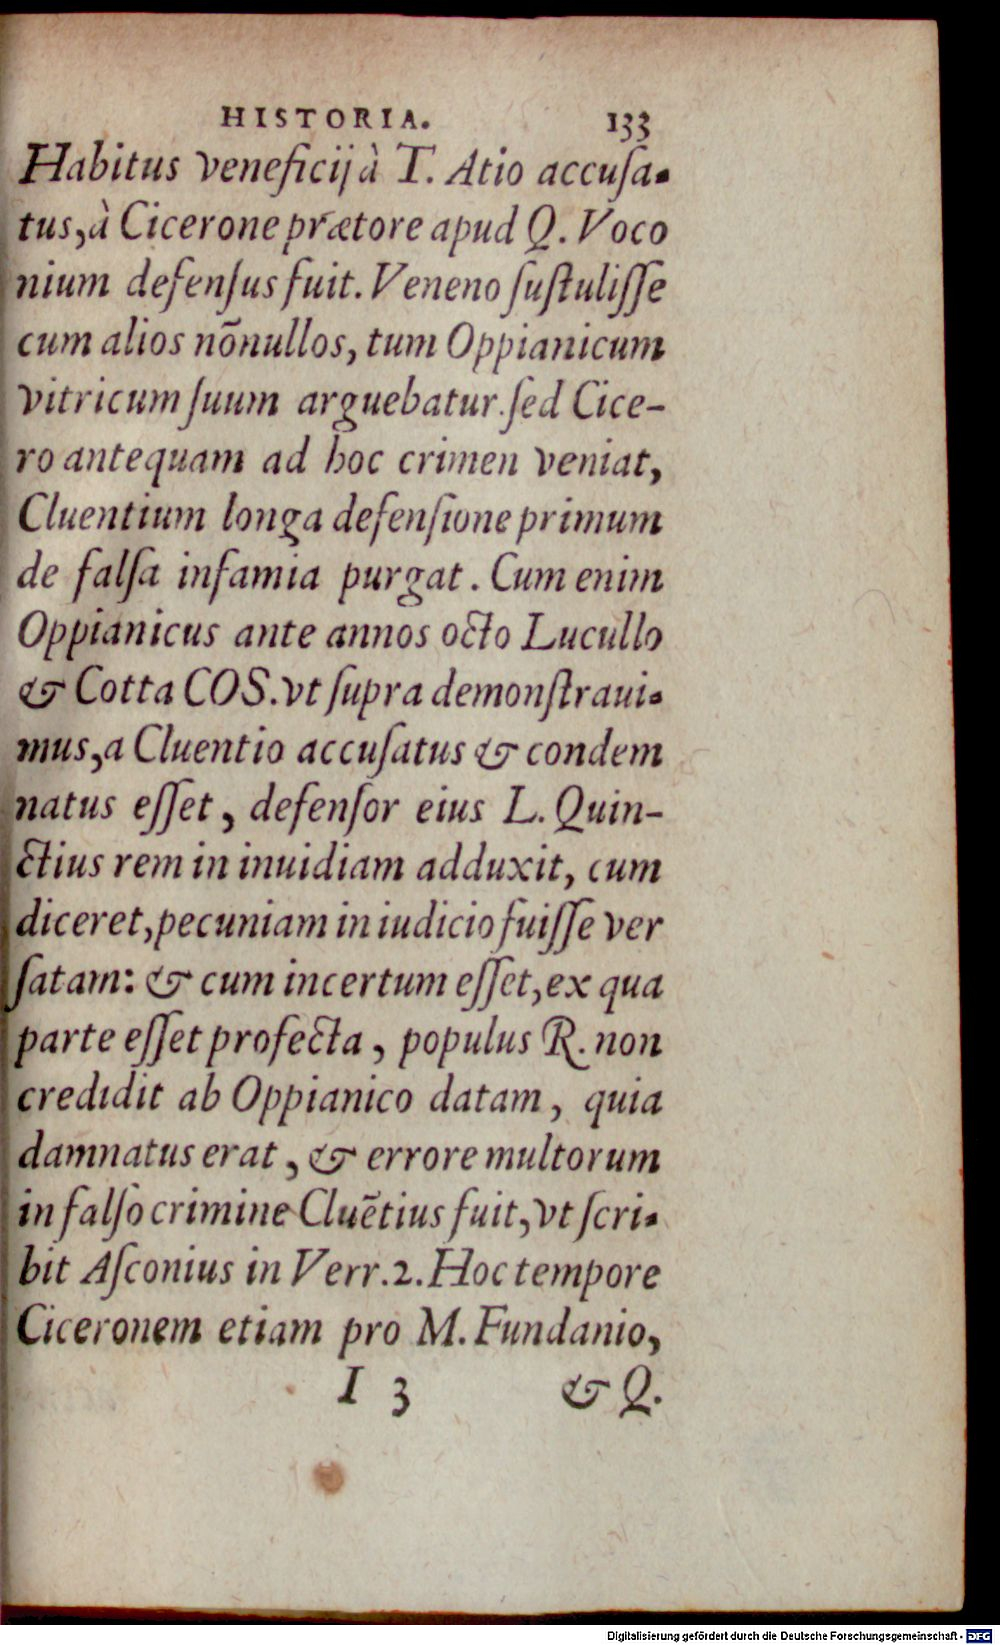 HISTORIA. 133
Habitus veneficij à T. Atio accuſa-
tus, à Cicerone prætore apud Q. Voco
nium defenſus fuit. Veneno ſuſtuliſſe
cum alios nõnullos, tum Oppianicum
vitricum ſuum arguebatur. ſed Cice-
ro antequam ad hoc crimen veniat,
Cluentium longa defenſione primum
de falſa infamia purgat. Cum enim
Oppianicus ante annos octo Lucullo
& Cotta COS. vt ſupra demonſtraui-
mus, a Cluentio accuſatus & condem
natus eſſet, defenſor eius L. Quin-
ctius rem in inuidiam adduxit, cum
diceret, pecuniam in iudicio fuiſſe ver
ſatam: & cum incertum eſſet, ex qua
parte eſſet profecta, populus R. non
credidit ab Oppianico datam, quia
damnatus erat, & errore multorum
in falſo crimine Cluẽtius fuit, vt ſcri-
bit Aſconius in Verr. 2. Hoc tempore
Ciceronem etiam pro M. Fundanio,
I 3 & Q.
Digitalisierung gefördert durch die Deutsche Forschungsgemeinschaft - DFG